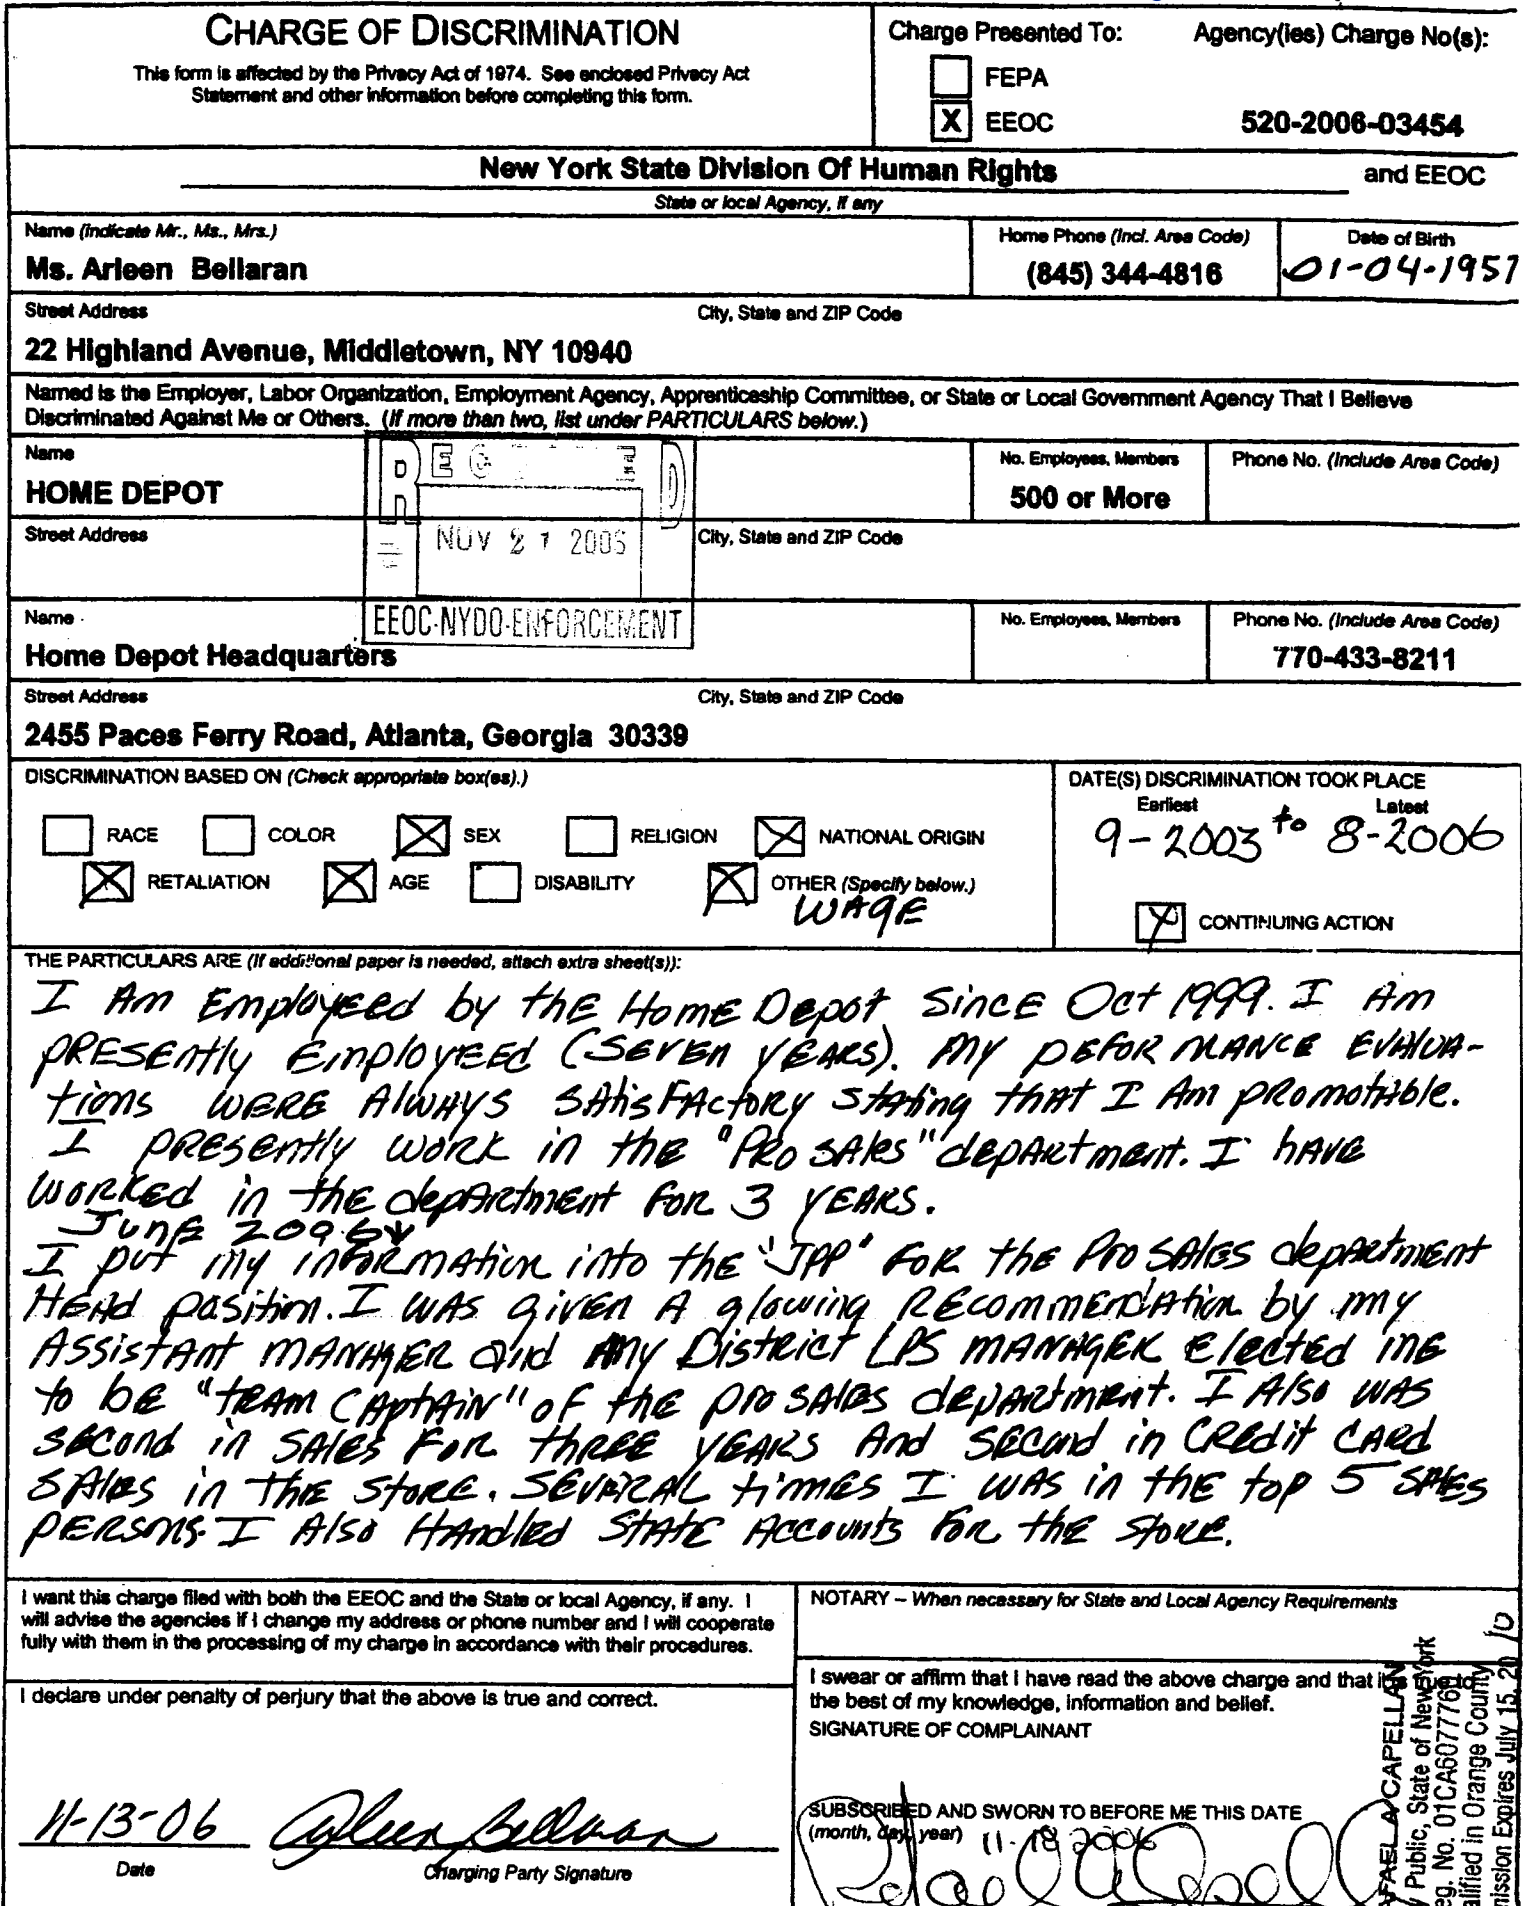 CHARGE OF DISCRIMINATION
This form is affected by the Privacy Act of 1974. See enclosed Privacy Act
Statement and other information before completing this form.
Charge Presented To:
Agency(ies) Charge No(s):
FEPA
X EEOC
520-2006-03454
New York State Division Of Human Rights
and EEOC
State or local Agency, if any
Name (Indicate Mr., Ms., Mrs.)
Ms. Arleen Bellaran
Home Phone (Incl. Area Code)
(845) 344-4816
Date of Birth
01-04-1957
Street Address
City, State and ZIP Code
22 Highland Avenue, Middletown, NY 10940
Named is the Employer, Labor Organization, Employment Agency, Apprenticeship Committee, or State or Local Government Agency That I Believe
Discriminated Against Me or Others. (If more than two, list under PARTICULARS below.)
Name
HOME DEPOT
No. Employees, Members
500 or More
Phone No. (Include Area Code)
Street Address
City, State and ZIP Code
NOV 21 2006
EEOC-NYDO-ENFORCEMENT
Name
Home Depot Headquarters
No. Employees, Members
Phone No. (Include Area Code)
770-433-8211
Street Address
City, State and ZIP Code
2455 Paces Ferry Road, Atlanta, Georgia 30339
DISCRIMINATION BASED ON (Check appropriate box(es).)
RACE
COLOR
X SEX
RELIGION
X NATIONAL ORIGIN
X RETALIATION
X AGE
DISABILITY
X OTHER (Specify below.)
WAGE
DATE(S) DISCRIMINATION TOOK PLACE
Earliest
Latest
9-2003 to 8-2006
X CONTINUING ACTION
THE PARTICULARS ARE (If additional paper is needed, attach extra sheet(s)):
I Am Employeed by the Home Depot Since Oct 1999. I Am
presently Employeed (Seven years). My peformance evalua-
tions were always satisfactory stating that I Am promotable.
I presently work in the "Pro Sales" department. I have
worked in the department for 3 years.
June 2006
I put my information into the "JPP" for the Pro Sales department
Head position. I was given a glowing recommendation by my
Assistant manager and my District LPS manager elected me
to be "team captain" of the pro sales department. I Also was
second in sales for three years and second in credit card
sales in the store. Several times I was in the top 5 sales
persons. I Also Handled State Accounts for the store.
I want this charge filed with both the EEOC and the State or local Agency, if any. I
will advise the agencies if I change my address or phone number and I will cooperate
fully with them in the processing of my charge in accordance with their procedures.
I declare under penalty of perjury that the above is true and correct.
11-13-06
Arleen Bellaran
Date
Charging Party Signature
NOTARY – When necessary for State and Local Agency Requirements
I swear or affirm that I have read the above charge and that it is true to
the best of my knowledge, information and belief.
SIGNATURE OF COMPLAINANT
SUBSCRIBED AND SWORN TO BEFORE ME THIS DATE
(month, day, year) 11-18 2006
RAFAEL A CAPELLAN
Public, State of New York
No. 01CA6077769
Qualified in Orange County
Commission Expires July 15, 20 10